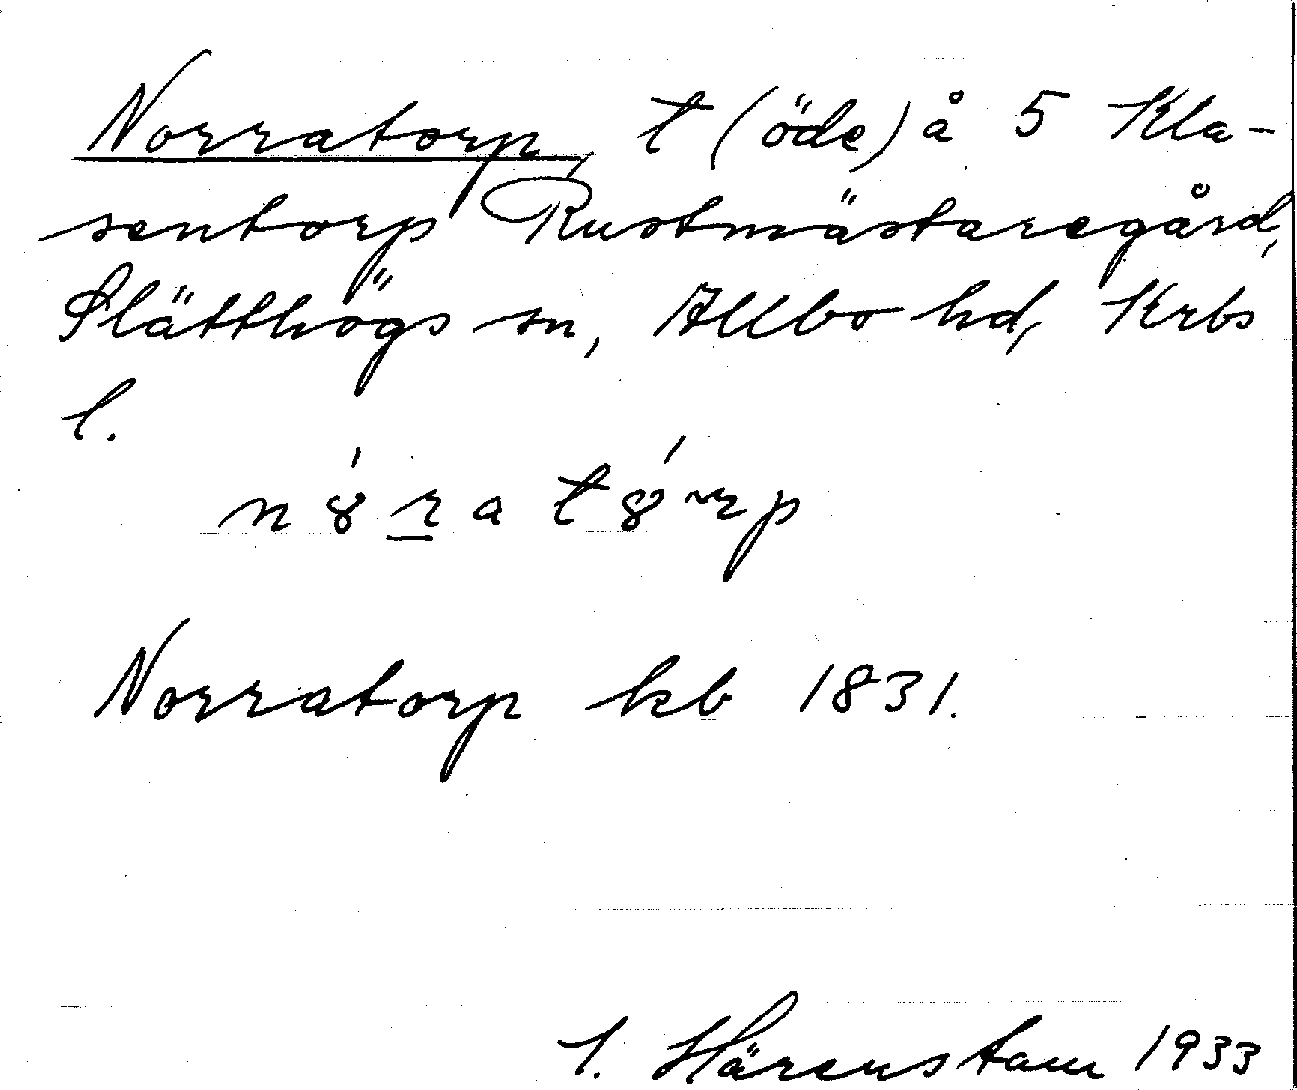 Norratorp, t (öde) å 5 Kla-
sentorp Rustmästaregård,
Slätthögs sn, Allbo hd, Krbs
l.
n8́rat8́rp
Norratorp kb 1831.
I. Härenstam 1933